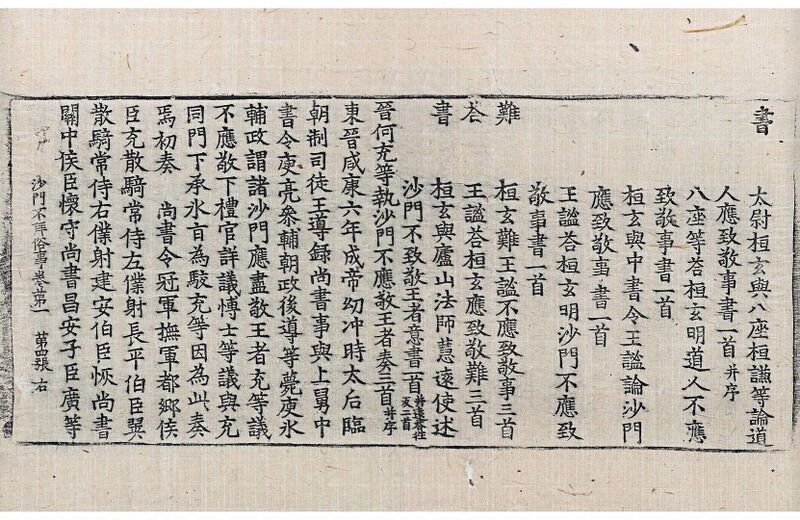 書 太尉桓玄與八座桓謙等論道
人應致敬事書一首并序
八座等荅桓玄明道人不應
致敬事書一首
桓玄與中書令王謐論沙門
應致敬事書一首
王謐荅桓玄明沙門不應致
敬事書一首
難 桓玄難王謐不應致敬事三首
荅 王謐荅桓玄應致敬難三首
書 桓玄與廬山法師慧遠使述
沙門不致敬王者意書一首并遠荅往反二首
晉何充等執沙門不應敬王者奏三首并序
東晉咸康六年成帝幼沖時太后臨
朝制司徒王導録尚書事與上舅中
書令庾亮叅輔朝政後導等薨庾氷
輔政謂諸沙門應盡敬王者充等議
不應敬下禮官詳議博士等議與充
同門下承氷旨為駮充等因為此奏
焉初奏 尚書令冠軍撫軍都鄉侯
臣充散騎常侍左僕射長平伯臣翌
散騎常侍右僕射建安伯臣恢尚書
關中侯臣懷守尚書昌安子臣廣等
沙門不拜俗事卷第一 第四張 右